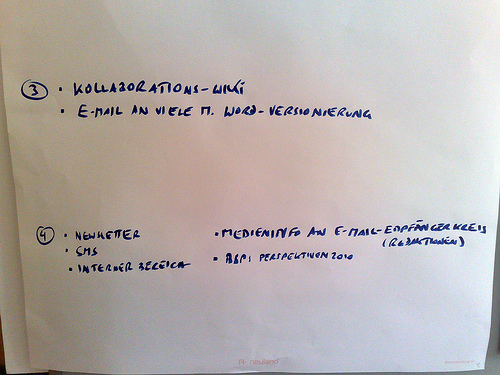 3 • KOLLABORATIONS-WIKI
• E-MAIL AN VIELE M. WORD-VERSIONIERUNG
4 • NEWSLETTER
• SMS
• INTERNER BEREICH
• MEDIENINFO AN E-MAIL-EMPFÄNGERKREIS
(REDAKTIONEN)
• BSP: PERSPEKTIVEN 2010
neuland